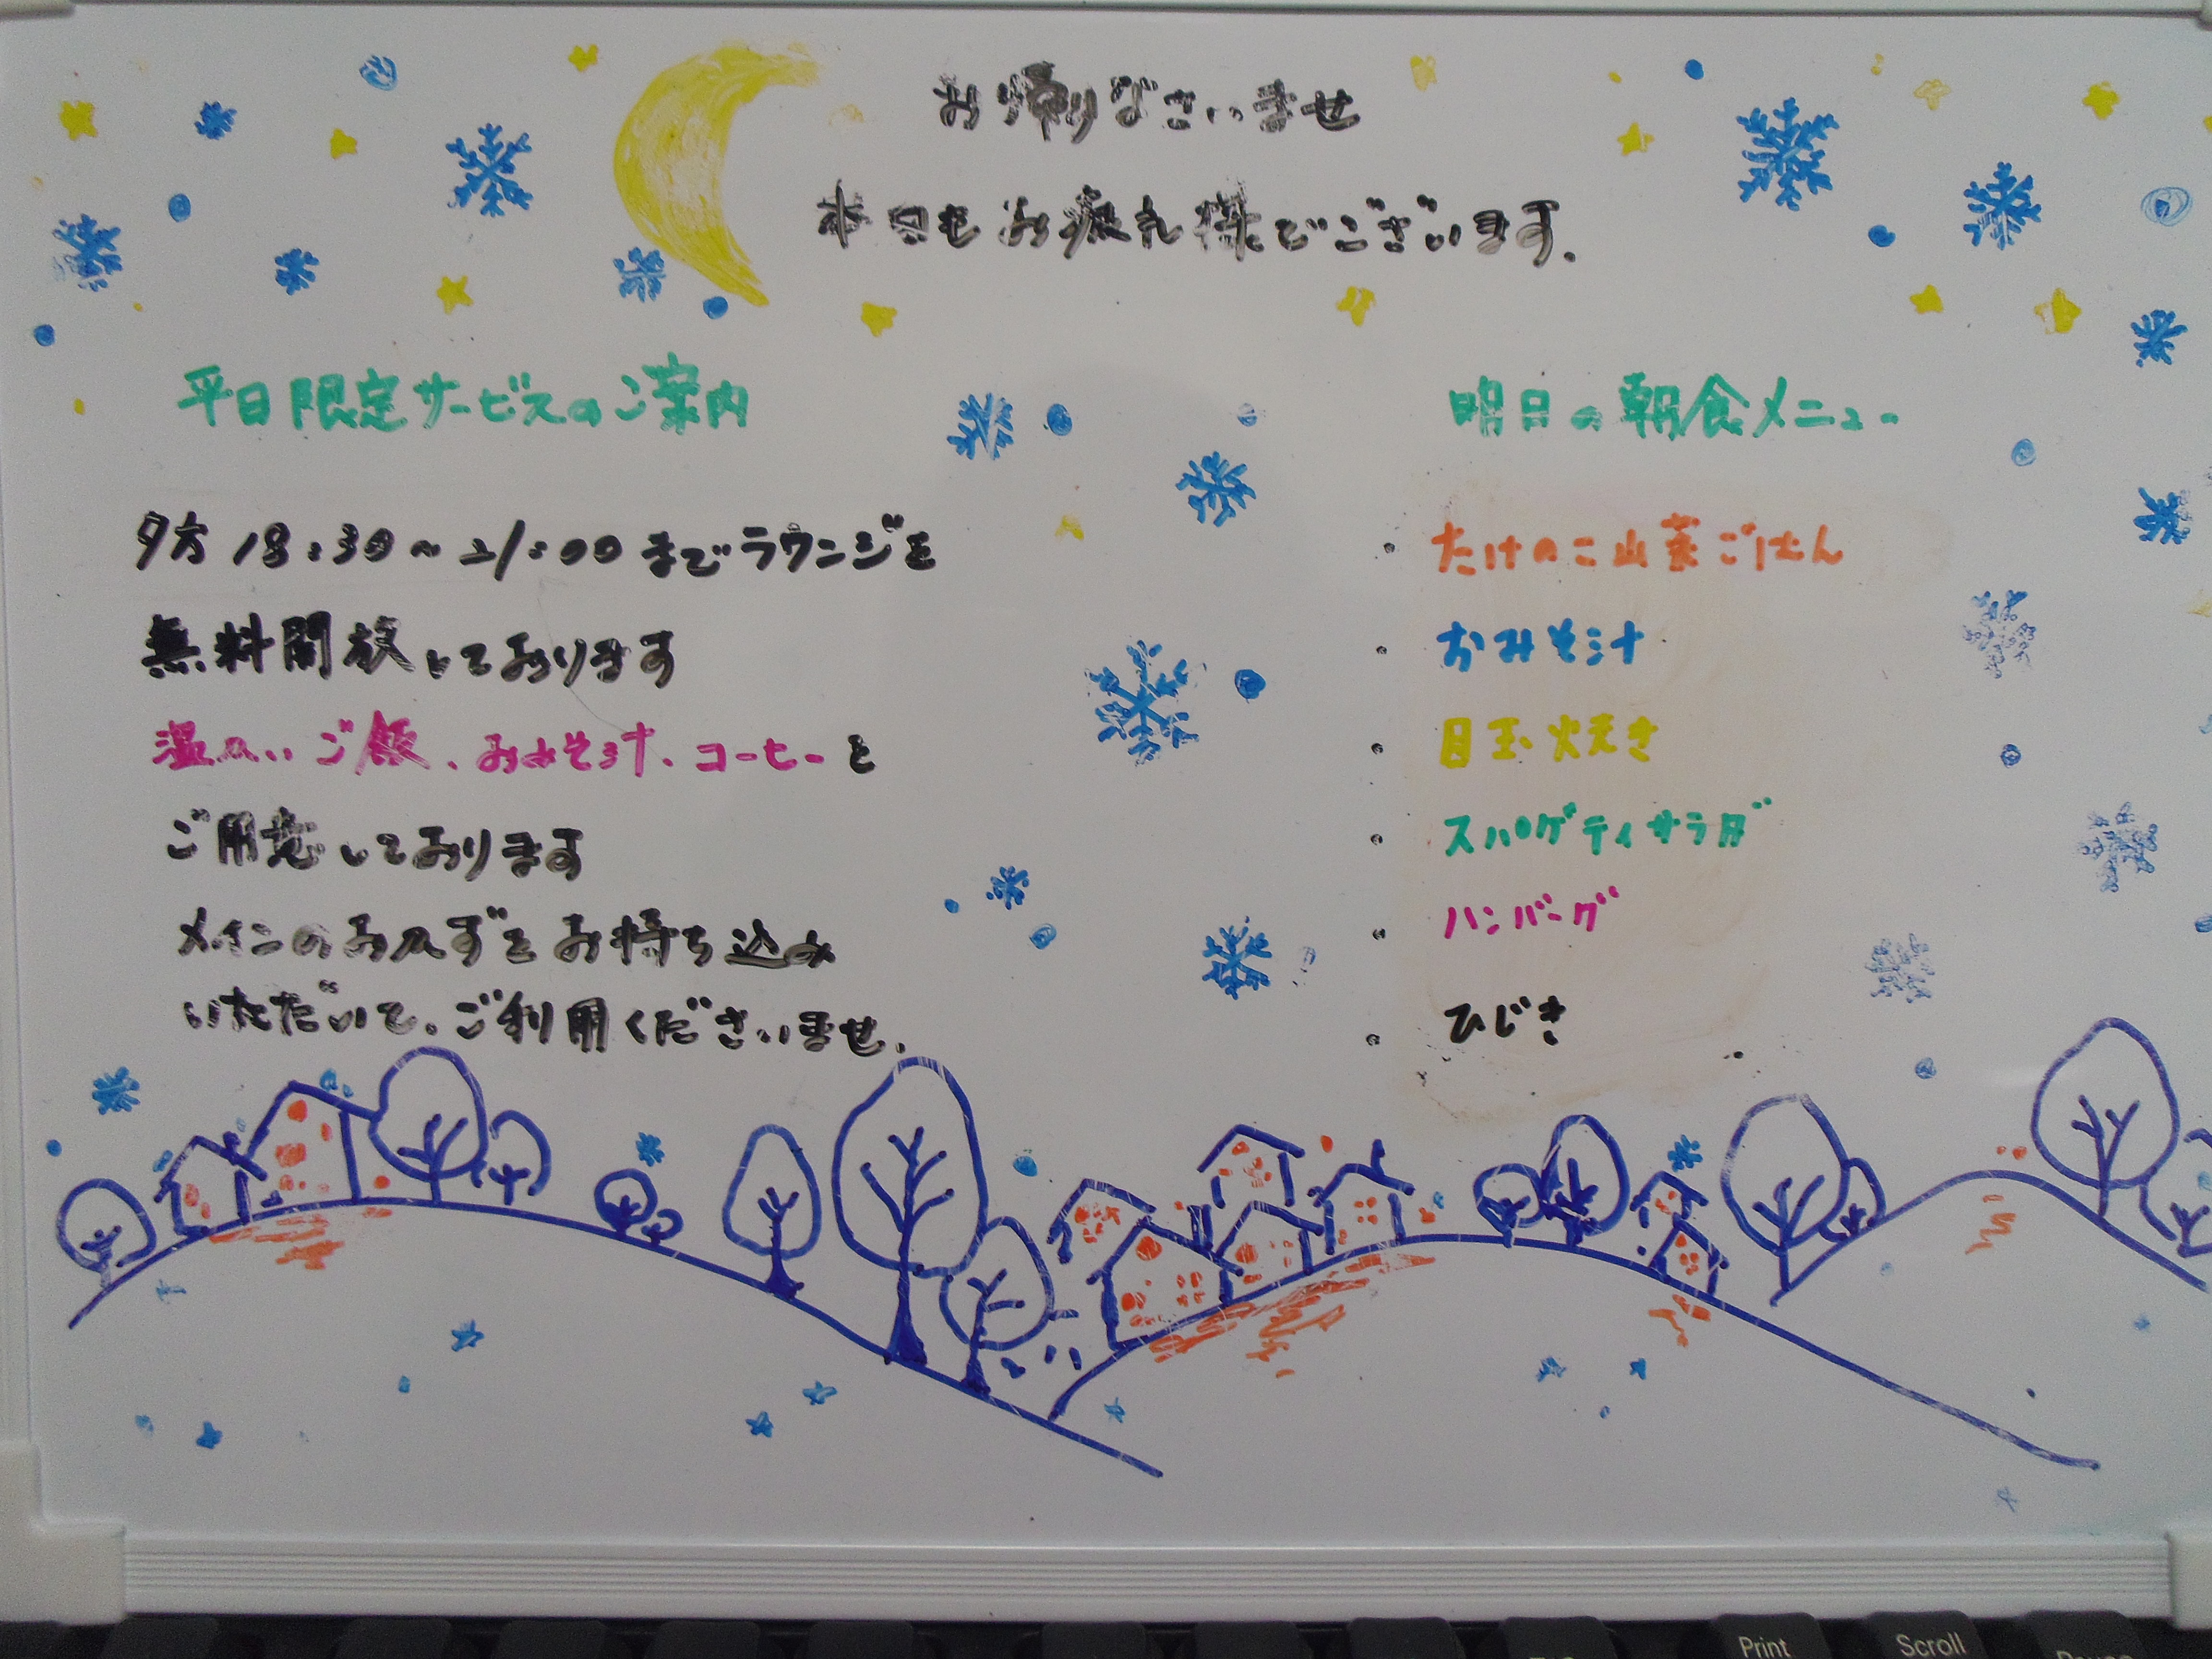 お帰りなさいませ
本日もお疲れ様でございます.
平日限定サービスのご案内
夕方 18:30〜21:00までラウンジを
無料開放しております
温かいご飯、おみそ汁、コーヒーを
ご用意しております
メインのおかずをお持ち込み
いただいて。ご利用くださいませ.
明日の朝食メニュー
・たけのこ山菜ごはん
・おみそ汁
・目玉焼き
・スパゲティサラダ
・ハンバーグ
・ひじき
Print
Scroll